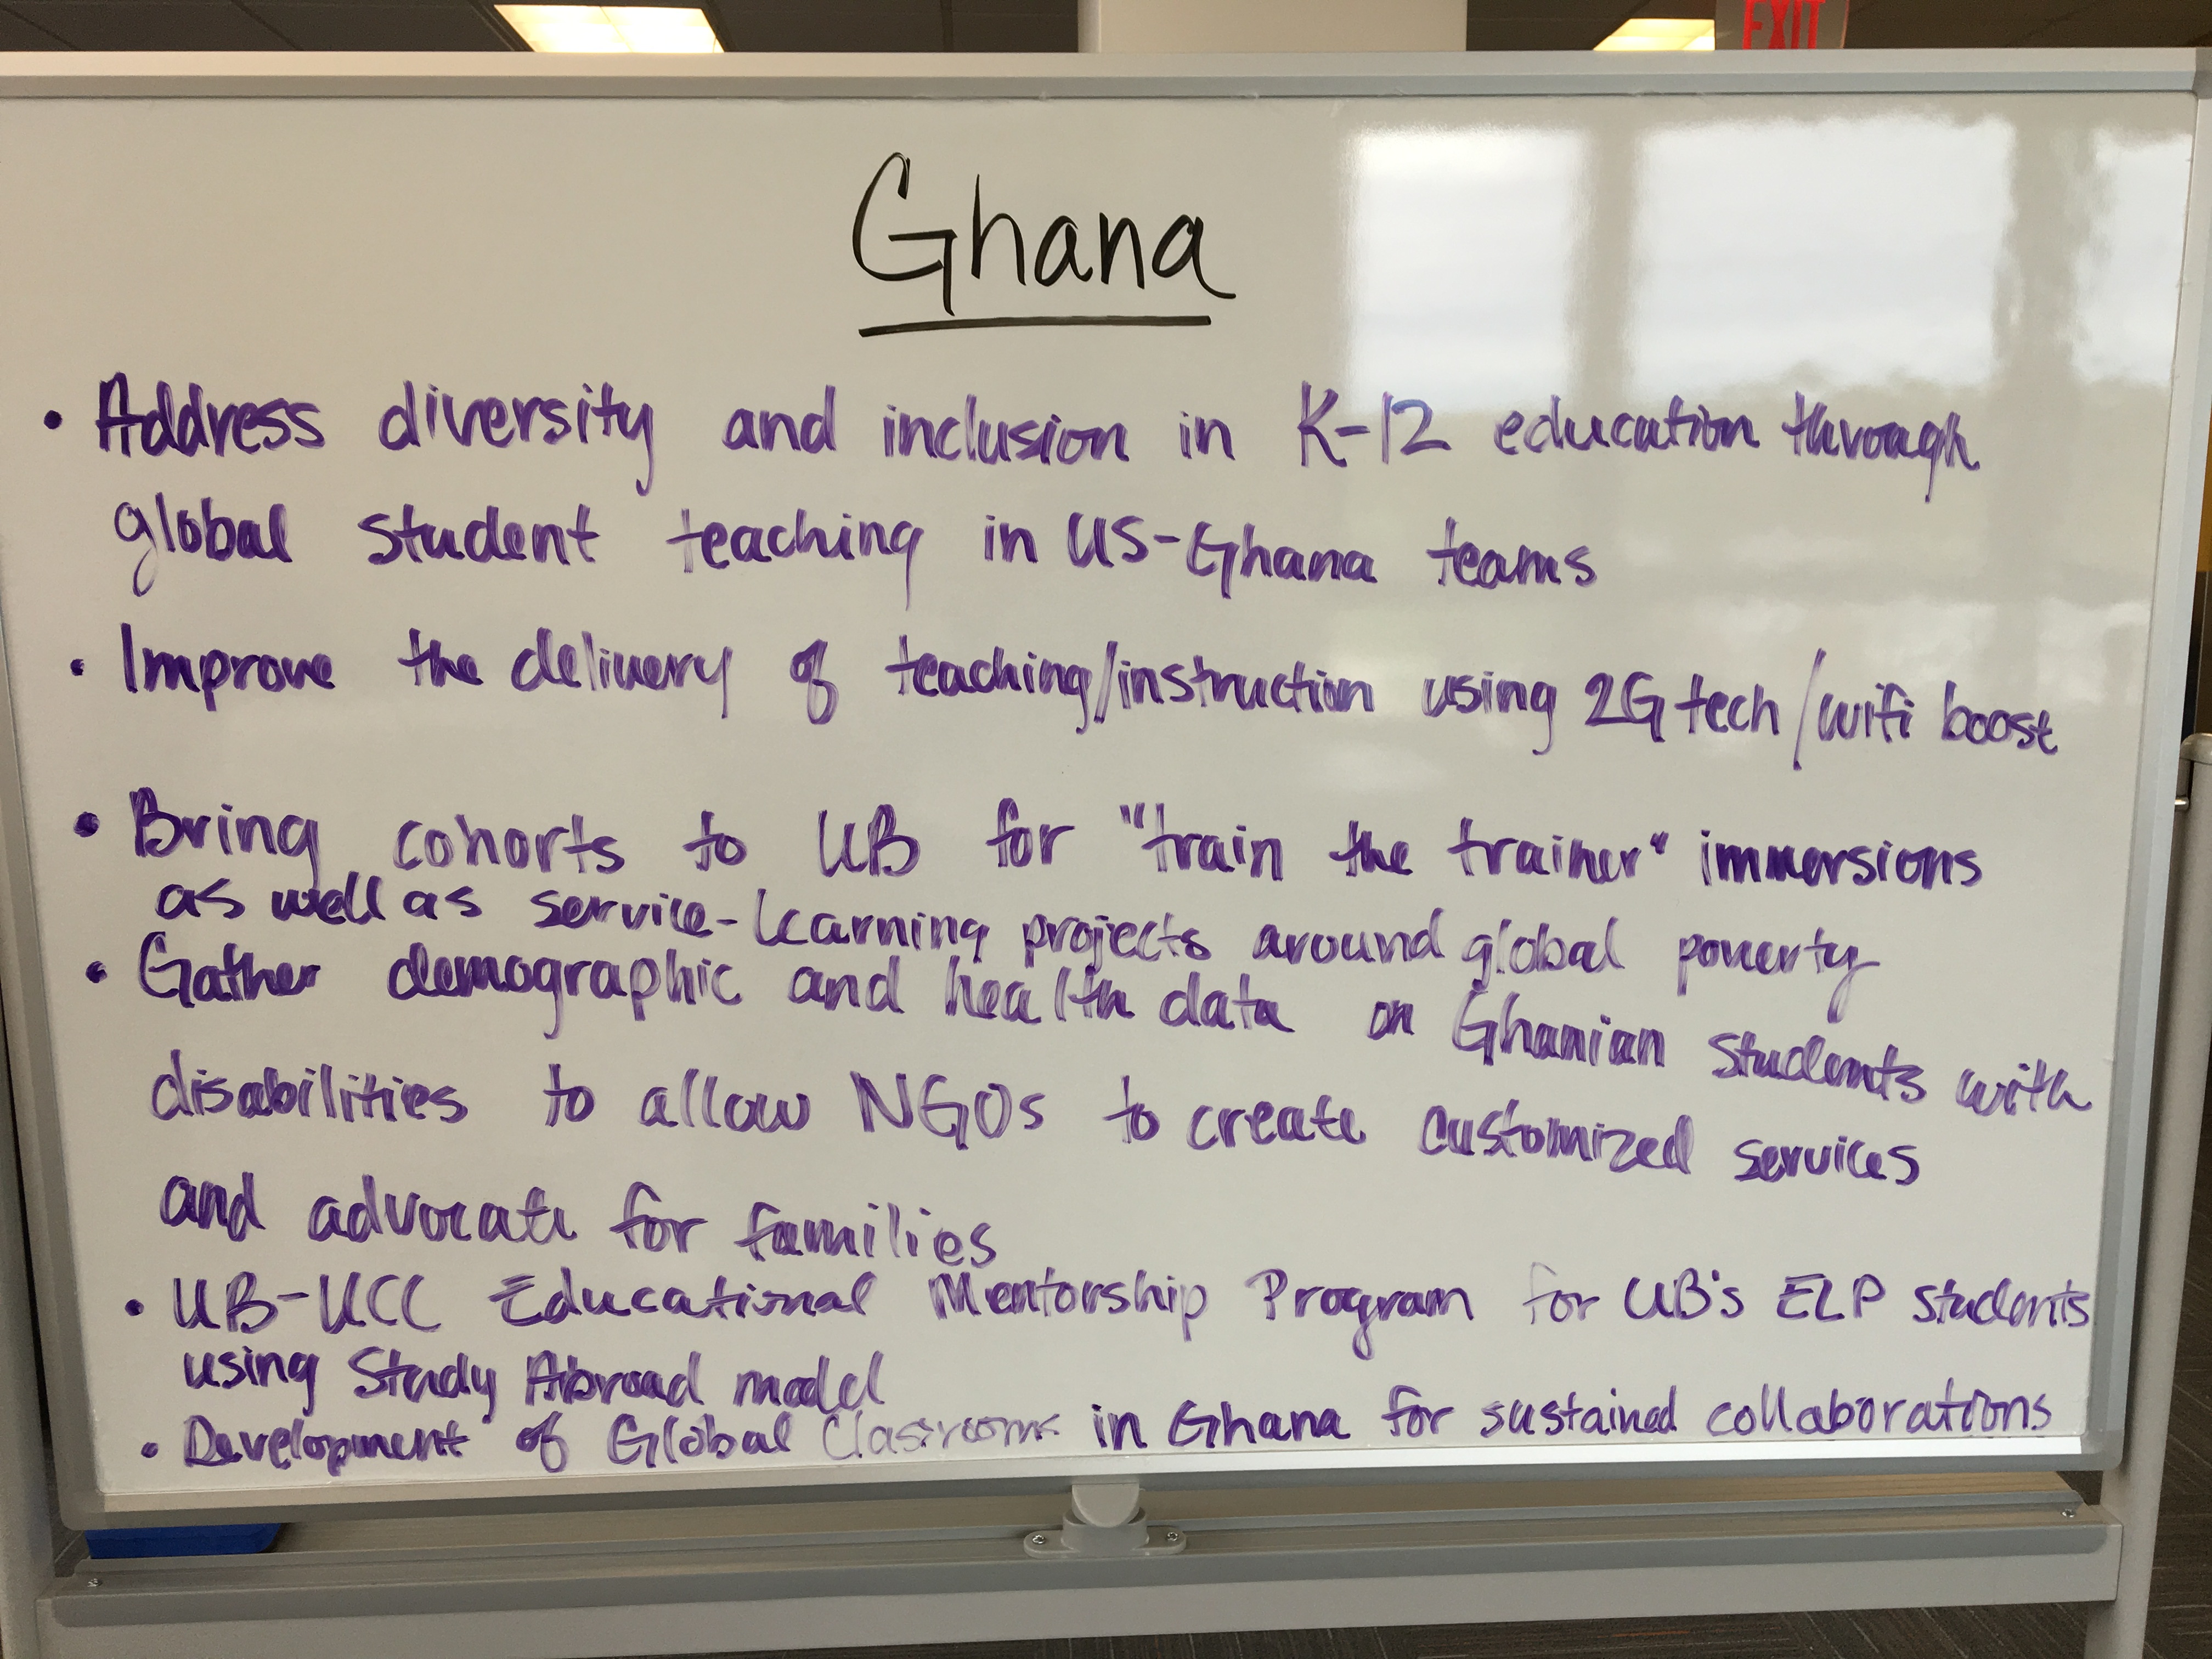 EXIT
Ghana
• Address diversity and inclusion in K-12 education through
global student teaching in US-Ghana teams
• Improve the delivery of teaching/instruction using 2G tech/wifi boost
• Bring cohorts to UB for "train the trainer" immersions
as well as service-learning projects around global poverty
• Gather demographic and health data on Ghanian students with
disabilities to allow NGOs to create customized services
and advocate for families
• UB-UCC Educational Mentorship Program for UB's ELP students
using Study Abroad model
• Development of Global Classrooms in Ghana for sustained collaborations